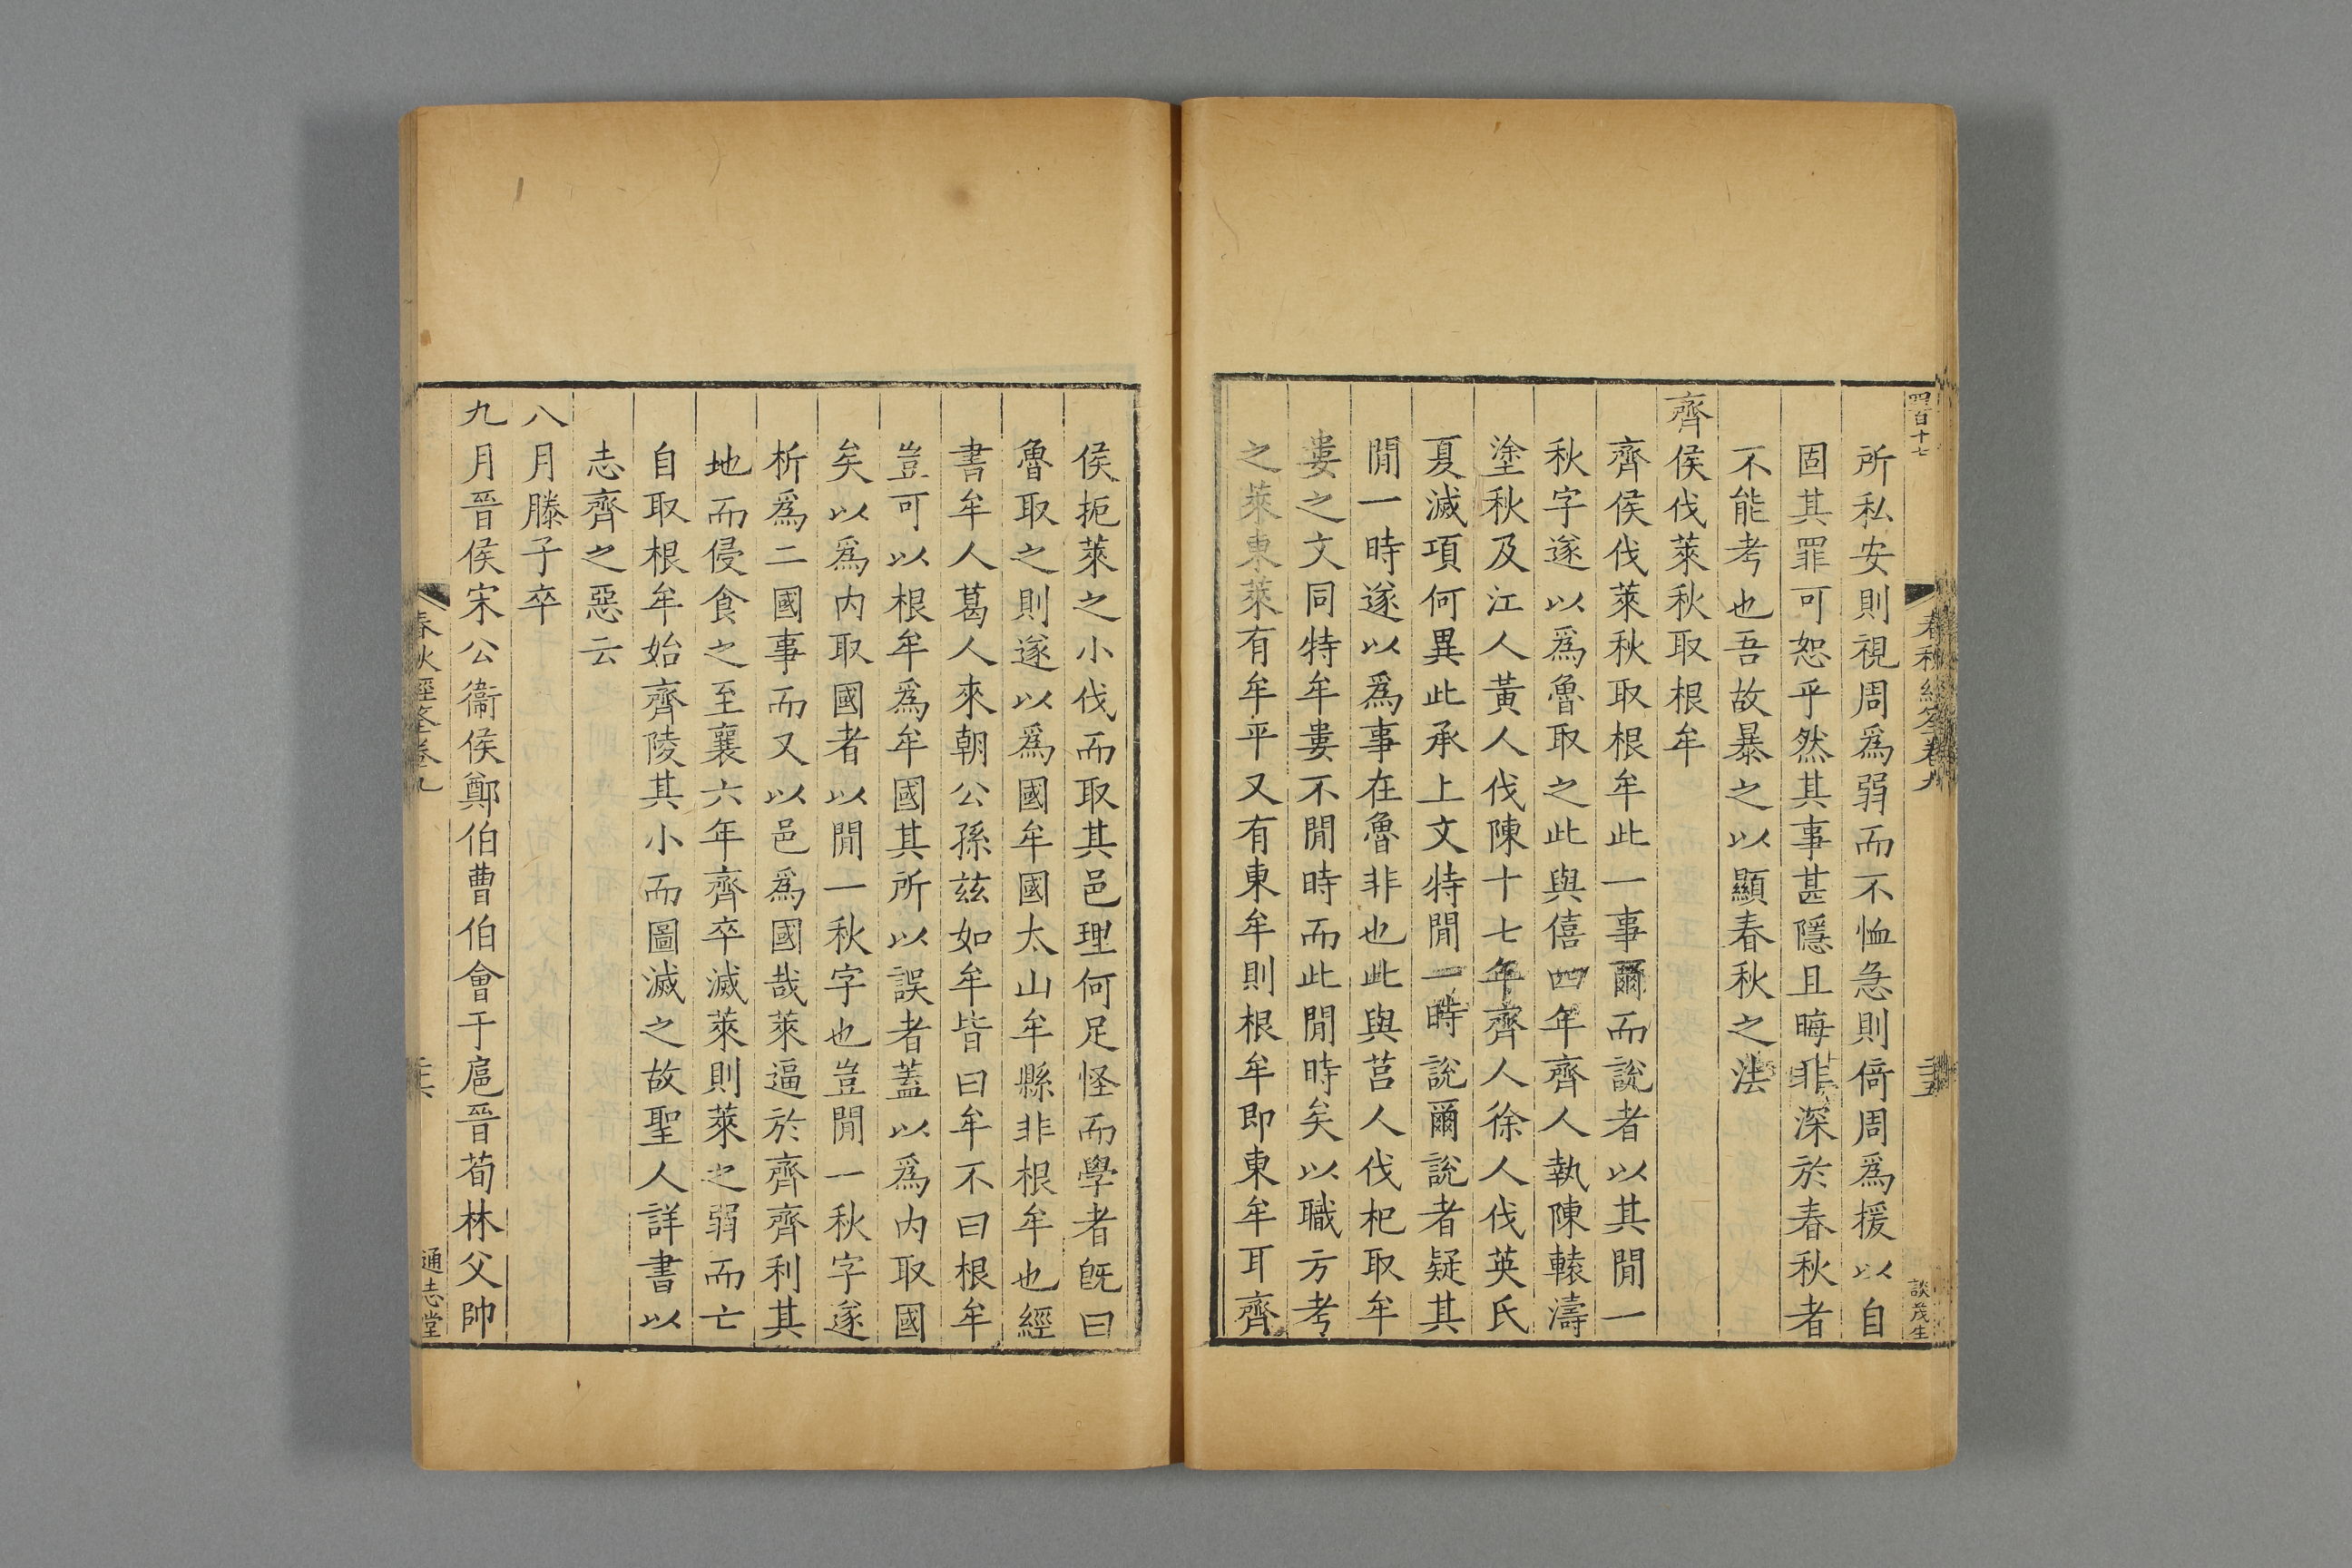 四百十七
春秋經筌卷九
二十五
談茂生
所私安則視周爲弱而不恤急則倚周爲援以自
固其罪可恕乎然其事甚隱且晦非深於春秋者
不能考也吾故暴之以顯春秋之法
齊侯伐萊秋取根牟
齊侯伐萊秋取根牟此一事爾而說者以其閒一
秋字遂以爲魯取之此與僖四年齊人執陳轅濤
塗秋及江人黃人伐陳十七年齊人徐人伐英氏
夏滅項何異此承上文特閒一時說爾說者疑其
閒一時遂以爲事在魯非也此與莒人伐杞取牟
婁之文同特牟婁不閒時而此閒時矣以職方考
之萊東萊有牟平又有東牟則根牟即東牟耳齊
侯扼萊之小伐而取其邑理何足怪而學者旣曰
魯取之則遂以爲國牟國太山牟縣非根牟也經
書牟人葛人來朝公孫茲如牟皆曰牟不曰根牟
豈可以根牟爲牟國其所以誤者蓋以爲內取國
矣以爲内取國者以閒一秋字也豈閒一秋字遂
析爲二國事而又以邑爲國哉萊逼於齊齊利其
地而侵食之至襄六年齊卒滅萊則萊之弱而亡
自取根牟始齊陵其小而圖滅之故聖人詳書以
志齊之惡云
八月滕子卒
九月晉侯宋公衞侯鄭伯曹伯會于扈晉荀林父帥
春秋經筌卷九
二十六
通志堂